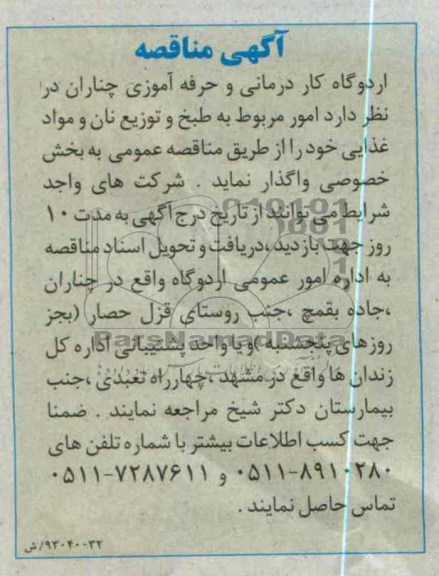 آگهی مناقصه
اردوگاه کار درمانی و حرفه آموزی چناران در
نظر دارد امور مربوط به طبخ و توزیع نان و مواد
غذایی خود را از طریق مناقصه عمومی به بخش
خصوصی واگذار نماید . شرکت های واجد
شرایط می توانند از تاریخ درج آگهی به مدت ۱۰
روز جهت بازدید ،دریافت و تحویل اسناد مناقصه
به اداره امور عمومی اردوگاه واقع در چناران
،جاده بقمچ ،جنب روستای قزل حصار (بجز
روزهای پنجشنبه )و یا واحد پشتیبانی اداره کل
زندان ها واقع در مشهد ،چهارراه تعبدی ،جنب
بیمارستان دکتر شیخ مراجعه نمایند . ضمنا
جهت کسب اطلاعات بیشتر با شماره تلفن های
۰۵۱۱-۸۹۱۰۲۸۰ و ۰۵۱۱-۷۲۸۷۶۱۱
تماس حاصل نمایند .
۹۳۰۴۰۰۳۲/ش
ParsNamadData